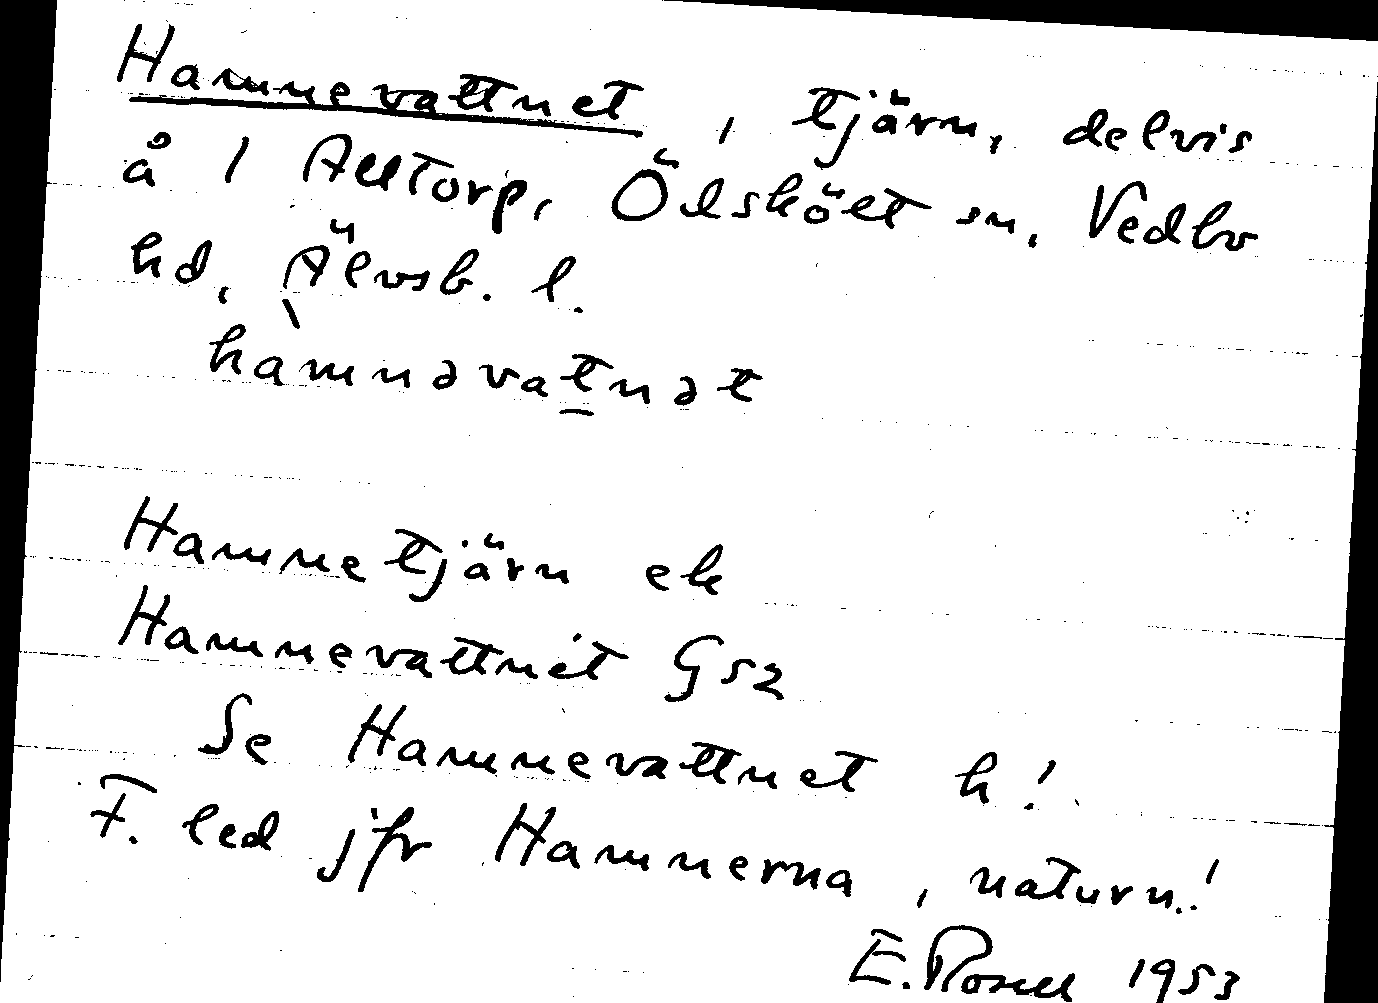 Hamnevattnet, tjärn, delvis
å 1 Alltorp, Ödskölt sn, Vedbo
hd, Älvsb. l.
hàmnəvatnət
Hamnetjärn ek
Hamnevattnet G52
Se Hamnevattnet h!
F. led jfr Hamnerna, naturn.!
E. Rosell 1953